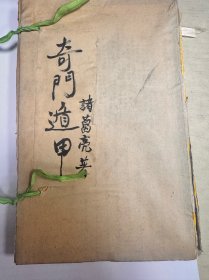 奇門遁甲
諸葛亮著